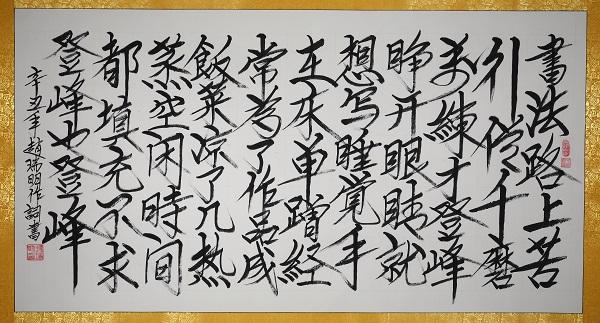 書法路上苦
引千磨
萬練才登峰
睁开眼睛就
想写睡覺手
在床单蹭經
常為了作品成
飯菜凉了几熱
蒸空闲時间
都填充不求
登峰也登峰
辛丑年趙瑞明作詞書